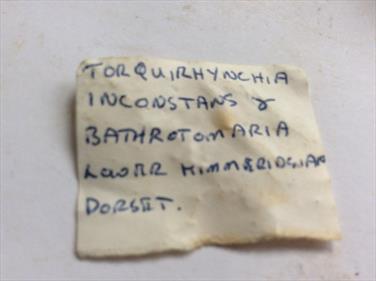 TORQUIRHYNCHIA
INCONSTANS &
BATHROTOMARIA
LOWER KIMMERIDGIAN
DORSET.